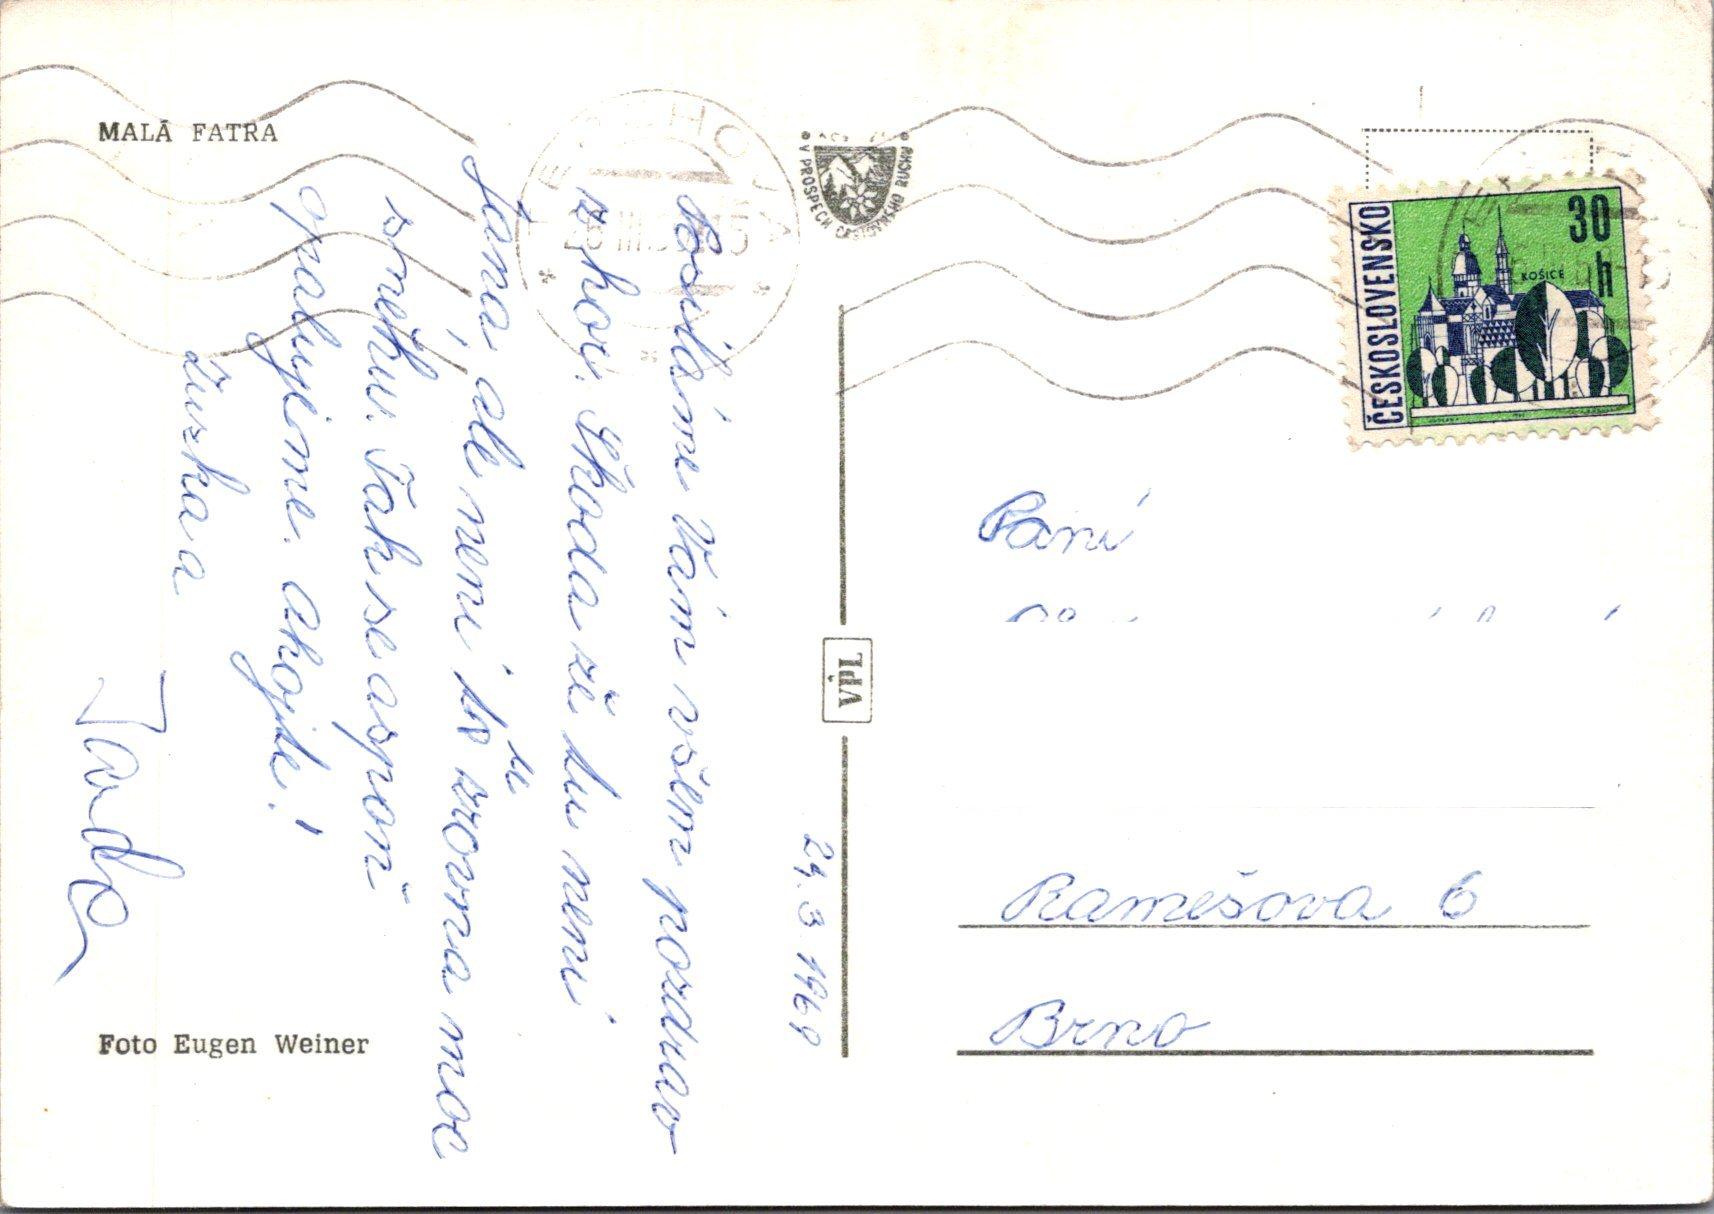 MALÁ FATRA
V PROSPECH CESTOVNÉHO RUCHU
ČESKOSLOVENSKO
30 h
KOŠICE
Posílám Vám všem pozdrav
z hor. Škoda že tu neni
Jana, ale neni tu zrovna moc
sněhu. Tak se aspoň
opalujeme. Ahojte!
Zuzka a
Jarda
24. 3. 1969
VPL
Paní
Ramešova 6
Brno
Foto Eugen Weiner